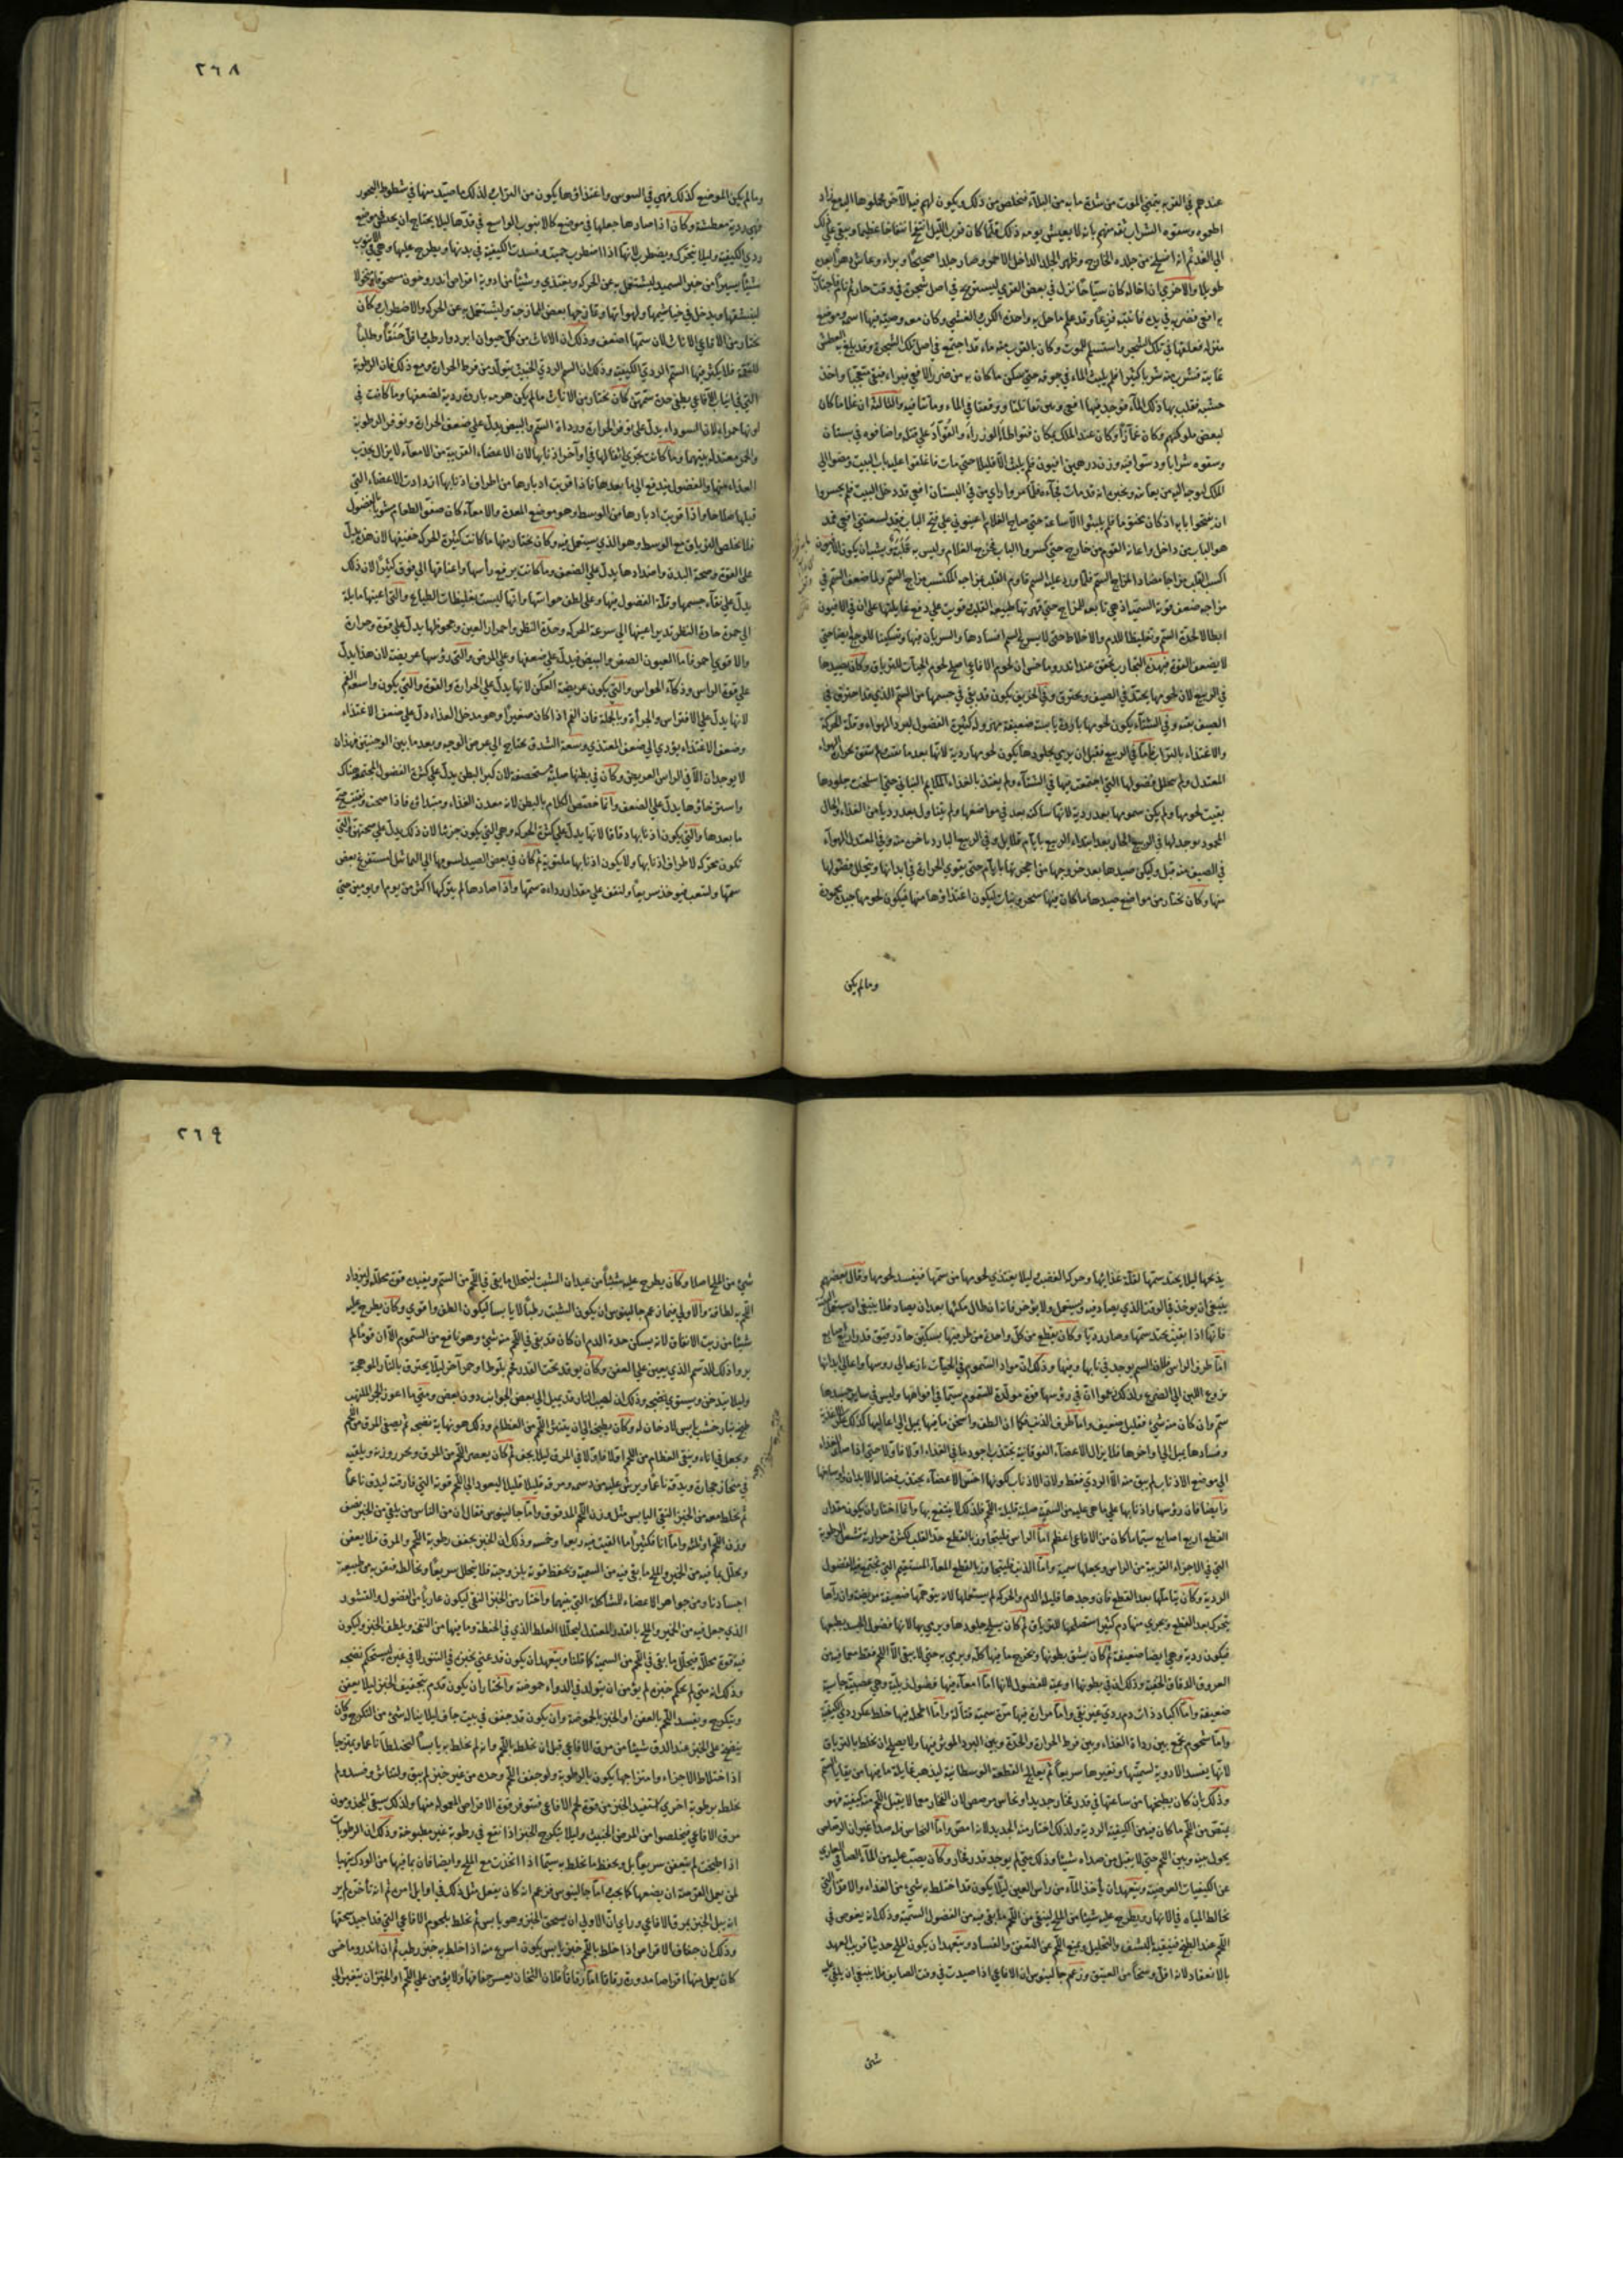 عندهم في القرية يتمنى الموت من شدة ما به من البلاء فتخلص من ذلك ويكون لهم فيها الاجر فحملوها اليه
اطعموه وسقوه الشراب ثقة منهم بانه لا يعيش يومه ذلك فلما كان قرب الليل انتفخ انتفاخا عظيما وبقي على ذلك
الى الغد ثم انه انسلخ من جلده الخارج وظهر الجلد الداخل الاحمر وصار جلدا صحيحا وبراء وعاش دهرا بعد
طويلا والاخرى ان اخاله كان سياحا نزل في بعض القرى ليستريح في اصل شجرة في وقت حار ثم نام
به افعى فضربه في يده فانتبه فزعا وقد علم ما حل به واخذه الكرب الغشي وكان معه وصية فيها اسمه وموضع
منزله فعلقها في تلك الشجرة واستسلم للموت وكان بالقرب منه ماء قد اجتمع في اصل تلك الشجرة وقد بلغ به العطش
غاية فشرب منه شربا كثيرا فلم يلبث الماء في جوفه حتى سكن ما كان به من ضرر الافعى فبراء فبقي متعجبا واخذ
خشبة فقلب بها ذلك الماء فوجد فيها افعيين تقاتلتا ووقعتا في الماء وماتتا فيه والثالثة ان غلاما كان
لبعض ملوكهم وكان غمازا وكان عند الملك بمكان فتواطأ الوزراء والقواد على قتله واضافوه في بستان
وسقوه شرابا ودسوا فيه وزن درهمين افيون فلم يلبث الا قليلا حتى مات فاغلقوا عليه باب البيت ومضوا الى
الملك ليوجه اليه من يعاينه ويخبره انه قد مات فجأة فلما مروا راى من في البستان افعى قد دخل البيت فلم يجسروا
ان يفتحوا بابه اذ كان مختوما فلم يلبثوا الا ساعة حتى صاح الغلام اعينوني على فتح الباب فقد لسعتني افعى فجذ
هو الباب من داخل واعانه القوم من خارج حتى كسروا الباب فخرج الغلام وليس به قلبة ويشبه ان يكون الافيون
اكسب القلب مزاجا مضادا لمزاج السم فلما ورد عليه السم قاوم القلب مزاجه المكتسب مزاج السم ولما ضعف السم في
مزاجه ضعف قوته السمية اذ هي تابعة للمزاج حتى قهرتها طبيعة القلب وقويت على دفع غايلتها على ان في الافيون
ابطالا لحدة السم وتغليظا للدم والاخلاط حتى لا يسرع السم افسادها والسريان فيها وتسكينا للوجع ايضا حتى
لا يضعف القوة فبهذه التجارب تحقق عند اندروماخس ان لحوم الافاعي اصلح لحوم الحيات للترياق وكان يصيدها
في الربيع لان لحومها يحتد في الصيف ويحترق وفي الخريف يكون قد بقي في جسمها من السم الذي قد احترق في
الصيف بقية وفي الشتاء يكون لحومها باردة يابسة ضعيفة مهزولة كثيرة الفضول لبرد الهواء وقلة الحركة
والاغتذاء بالتراب فاما في الربيع فقبل ان يرمي بجلودها يكون لحومها ردية لانها بعد ما نقت لم تستنق بحرارة الهواء
المعتدل ولم يتحلل فضولها التي اجتمعت فيها في الشتاء ولم يغتذ بالغذاء الملايم النباتي حتى اسلخت جلودها
بقيت لحومها ولم يكن سمومها بعد ردية لانها ساكنة بعد في مواضعها ولم يتناول بعد رديا من الغذاء والحال
المحمود يوجد لها في الربيع الحار بعد ابتداء الربيع بايام قلايل وفي الربيع البارد باخره وفي المعتدل الهواء
في الصيف منه قبل وليكن صيدها بعد خروجها من اجحرتها بايام حتى يقوى الحرارة في ابدانها ويتحلل فضولها
منها وكان يختار من مواضع صيدها ما كان فيها شجر ونبات ليكون اغتذاؤها منها فيكون لحومها جيدة
وما لم يكن
٢٦٨
وما لم يكن الموضع كذلك فهي في السوس واغتذاؤها يكون من التراب لذلك ما صيد منها في شطوط البحور
فهي ردية معطشة وكان اذا صادها جعلها في موضع كالانبوب الواسع في قدها ليلا يحتاج ان يحدث في موضع
ردي الكيفية وليلا يتحرك ويضطرب لانها اذا اضطربت حميت وفسدت الكيفية في بدنها ويطرح عليها وهي في الانبوب
شيئا يسيرا من خبز السميد ليشتغل به عن الحركة ويغتذي وشيئا من ادوية اقراص اندروخون مسحوقة
ليتنشقها ويدخل في خياشيمها ولهواتها وقارنتها بعض الممازجة وليشتغل به عن الحركة والاضطراب كان
يختار من الافاعي الاناث لان سمها اضعف وذلك ان الاناث من كل حيوان ابرد وارطب اقل حنقا وطلبا
للنقمة فلا يكثر فيها السم الردي الكيفية وذلك ان السم الردي الخبيث يتولد من فرط الحرارة ومع ذلك فان الرطوبة
التي في انياب الافاعي يطفى حدة سمتهن كان يختار من الاناث ما لم يكن هرمة باردة ردية لضعفها وما كانت في
لونها حمراء لان السوداء يدل على توفر الحرارة ورداة السم والبيض يدل على ضعف الحرارة وتوفر الرطوبة
والحمر معتدلة بينهما وما كانت مجرى اثفالها في اواخر اذنابها لان الاعضاء القريبة من الامعاء لا يزال يجذب
الغذاء منها والفضول يندفع الى ما بعدها فاذا قربت ادبارها من اطراف اذنابها ازدادت الاعضاء التي
قبلها صلاحا واذا قربت ادبارها من الوسط وهو موضع المعدة والامعاء كان صفو الطعام مشوبا بالفضول
فلا يخلص الترياق مع الوسط وهو الذي سيتعمل فيه وكان يختار منها ما كانت كثيرة الحركة خفيفتها لان هذا يدل
على القوة وصحة البدن وامتدادها يدل على الضعف وما كانت يرفع راسها واعناقها الى فوق كثيرا لان ذلك
يدل على نقاء جسمها وقلة الفضول فيها وعلى لطف حواسها وانها ليست بغليظات الطباع والتي اعينها مايلة
الى حمرة حادة النظر تدير اعينها الى سرعة الحركة وحدة النظر واحمرار العين وجحوظها يدل على قوة وحرارة
والاقوى احمر فاما العيون الصفر والبيض فيدل على ضعفها وعلى المرض والتي رؤسها عريضة لان هذا يدل
على قوة الراس وذكاء الحواس والتي يكون عريضة العكن لانها يدل على الحرارة والقوة والتي يكون واسعة الفم
لانها يدل على الافتراس والجرأة وبالجملة فان الفم اذا كان صغيرا وهو مدخل الغذاء دل على ضعف الاغتذاء
وضعف الاغتذاء يؤدي الى ضعف المغتذي وسعة الشدق يحتاج الى عرض الوجه وبعد ما بين الوجنتين فهذان
لا يوجدان الا في الراس العريض وكان في بطنها صلبة مستحصفة لان كبر البطن يدل على كثرة الفضول المجتمعة هناك
واسترخاؤها يدل على الضعف وانما خصص الكلام بالبطن لانه معدن الغذاء ومبتداؤه فاذا صحت وقويت صح
ما بعدها والتي يكون اذنابها دقاقا لانها يدل على كثرة الحركة وهي التي يكون حزنا لان ذلك يدل على صحتهن والتي
تكون محركة لاطراف اذنابها ولا يكون اذنابها ملتوية ثم كان في بعض الصيد اسومها الى الماشل ليستفرغ بعض
سمها ولتتعب فيوخذ سريعا ولنقف على مقدار رداءة سمها واذا صادها لم يتركها اكثر من يوم او يومين حتى
يذبحها ليلا يحتد سمها لقلة غذائها وحركة الغضب وليلا يغتذي لحومها من سمها فيفسد لحومها وقال بعضهم
ينبغي ان يوخذ في الوقت الذي يصاد فيه ويستعمل ولا يؤخر فانه ان طال مكثها بعد ان يصاد فلا ينبغي ان يستعمل البتة
فانها اذا بقيت يحتد سمها وصار رديا وكان يقطع من كل واحدة من طرفيها بسكين حاد رقيق قدر اربع اصابع
اما طرف الراس فلان السم يوجد في نابها وفيها وذلك ان مواد السموم في الحيات نازعة الى روسها واعالي ابدانها
نزوع اللبن الى الضرع ولذلك زعموا ان في رؤسها قوة مولدة للسموم سيما في افواهها وليس في ساير جسدها
سم وان كان منه شيء فقليل ضعيف واما طرف الذنب فكما ان الطف واسخن ما فيها يميل الى اعاليها كذلك غلظ الاغذية
وفسادها يميل الى اواخرها فلا يزال الاعضاء الفوقانية يجتذب اجود ما في الغذاء اولا فاولا حتى اذا صار الغذاء
الى موضع الاذناب لم يبق منه الا الردي فقط ولان الاذناب لكونها اخس الاعضاء يجتذب فضالة الابدان
فايضا فان رؤسها واذنابها على ما هي عليه من السمية صلبة قليلة اللحم فلذلك لا ينتفع بها وانما اختار ان يكون مقدار
القطع اربع اصابع سيما ما كان من الافاعي اعظم اما الراس فليتجاوز بالقطع حد القلب لكثرة حرارية تشمل الرطوبة
التي في الاجزاء القريبة من الراس ويجعلها سمية واما الذنب فليتجاوز بالقطع المعاء المستقيم التي يجتمع فيها الفضول
الردية وكان يتأملها بعد القطع فان وجدها قليلة الدم والحركة لم يستعملها لانه يتوهمها ضعيفة مريضة وان رآها
يتحرك بعد القطع ويجري منها دم كثير استعملها للترياق ثم كان يسلخ جلودها ويرمي بها لانها فضول الجسد
فيكون ردية وهي ايضا ضعيفة ثم كان يشق بطونها ويخرج ما فيها كله ويرمي به حتى لا يبقى الا اللحم فقط مما فيه من
العروق الدقاق الخفية وذلك ان في بطونها اوعية للفضول لانها اما امعاء فيها فضول ذبلية وهي عصبية جاسية
ضعيفة واما اكباد ذات دم ردي غير نقي واما مرارة فيها مرة سمية قتالة واما اطحلة فيها خلط عكر ردي الكيفية
واما شحوم يجمع بين رداة الغذاء وبين فرط الحرارة والحدة وبين البرد الموثر فيها ولا يصلح ان يخلط بالترياق
لانها يفسد الادوية لسميتها وتغيرها سريعا ثم يعالج القطعة الوسطانية ليذهب غايلة ما فيها من بقايا السم
وذلك ان كان يطبخها من ساعتها في قدر فخار جديد او نحاس مرصص لان الفخار مما لا يقبل اللحم منه كيفية فهو
ينتص من اللحم ما كان فيه من الكيفية الردية ولذلك اختار منه الجديد لانه امص واما النحاس فله صدا غير ان الرصاص
يحول بينه وبين اللحم حتى لا يقبل من صداه شيئا وذلك متى لم يوجد قدر فخار وكان يصب عليه من الماء الصافي العاري
عن الكيفيات العرضية ويتعهد ان يأخذ الماء من راس العين ليلا يكون قد اختلط به شيء من الغذاء والاقذار التي
يخالط المياه في الانهار ويطرح عليه شيئا من الملح لينقي من اللحم ما بقي فيه من الفضول السمية وذلك انه يغوص في
اللحم عند الطبخ فينقيه بالنشف والتحليل ويمنع اللحم عن التعفن والفساد ويتعهد ان يكون الملح حديثا قريب العهد
بالانعقاد لانه اقل وسخا من العتيق وزعم جالينوس ان الافاعي اذا صيدت في وقت الصايف فلا ينبغي ان يلقى عليه
شيء
٢٦٩
شيء من الملح اصلا وكان يطرح عليه شيئا من عيدان الشبت ليتحلل ما بقي في اللحم من السم ويفيده قوة محللة ليزداد
اللحم به لطافة والاولى فيما زعم جالينوس ان يكون الشبت رطبا لا يابسا ليكون الطف واقوى وكان يطرح عليه
شيئا من زيت الانفاق لانه يسكن حدة الدم ان كان قد بقي في اللحم منه شيء وهو نافع من السموم الا ان قوما لم
يروا ذلك للدسم الذي يعين على العفن وكان يوقد تحت القدر فحم بلوط او جمر آخر ليلا يحترق بالنار الموهجة
وليلا يتدخن ويستوي نضجه وذلك ان لهيب النار قد يميل الى بعض الجوانب دون بعض ومتى ما اعوز الجمر الملتهب
طبخه بنار خشب يابس لا دخان له وكان يطبخه الى ان يتهرى اللحم من العظام وذلك هو نهاية نضجه ثم يصفى المرق من اللحم
ويجعل في اناء وينقى العظام من اللحم اولا فاولا في المرق ليلا يجف ثم كان يعصر اللحم من المرق ويحرر وزنه ويلقيه
في منحاز حجارة ويدقه ناعما ويرش عليه من دسمه ومرقه قليلا قليلا ليعود الى اللحم قوته التي فارقت ليدق ناعما
ثم يخلط معه من الخبز النقي اليابس مثل وزن اللحم المدقوق واما جالينوس فقال ان من الناس من يلقي من الخبز نصف
وزن اللحم او ثلثه واما انا فكثيرا ما القيت فيه ربعه او خمسه وذلك ان الخبز يجفف رطوبة اللحم والمرق فلا يعفن
ويحلل بما فيه من الخمير والملح ما بقي فيه من السمية ويحفظ قوته بلزوجته فلا يتحلل سريعا ويخالط فتقربه من طبيعة
اجسادنا ومن جواهر الاعضاء للمشاكلة التي بينهما واختار من الخبز النقي ليكون عاريا من الفضول والقشور
الذي جعل فيه من الخمير والملح بالقدر المعتدل ليتحلل الغلظ الذي في الحنطة وما فيها من النفخة ويلطف الخبز وليكون
فيه قوة محللة فيحلل ما بقي في اللحم من السمية كما قلنا ويتعهد ان يكون قد عني بخبزه في التنور لا في غيره ليستحكم نضجه
وذلك انه متى لم يحكم خبزه لم يؤمن ان يتولد في الدواء حموضة والمختار ان يكون قد تم تجفيف الخبز ليلا يعفن
ويتكرج ويفسد اللحم بالعفن او الخبز بالحموضة وان يكون قد جفف في بيت جاف ليلا يناله شيء من التكرج وكان
ينضح على الخبز عند الدق شيئا من مرق الافاعي قبل ان يخلطه باللحم وانه لم يخلطه به يابسا لينخلط ناعما ويمتزجا
اذ اختلاط الاجزاء وامتزاجها يكون بالرطوبة ولو جفف اللحم وحده من غير خبز لم يبق ولتناش وفسد ولم
يخلطه برطوبة اخرى لتفيد الخبز من قوة لحم الافاعي فتوفر قوة الاقراص المعمولة منها ولذلك يسقى المجذومون
مرق الافاعي فيخلصوا من المرض الخبيث وليلا يتكرج الخبز اذا نقع في رطوبة غير مطبوخة وذلك ان الرطوبات
اذا طبخت لم يتعفن سريعا بل ويحفظ ما يخلط به سيما اذا اتخذت مع الملح وايضا فان بما فيها من الودك يتهيا
لمن يعمل القرصة ان يصنعها كما يجب اما جالينوس فزعم انه كان يفعل مثل ذلك في اوايل امره ثم انه تأخر لم ير
انه يبل الخبز بمرق الافاعي وراى ان الاولى ان يسحق الخبز وهو يابس ثم يخلط بلحوم الافاعي التي قد اجيد سحقها
وذلك ان جفاف الاقراص اذا خلط باللحم خبز يابس يكون اسرع منه اذا خلط به خبز رطب ثم ان اندروماخس
كان يعمل منها اقراصا مدورة رقاقا اما رقاقا فلان الثخان يعسر جفافها ولا يؤمن على اللحم او الخبز ان يتغير الى